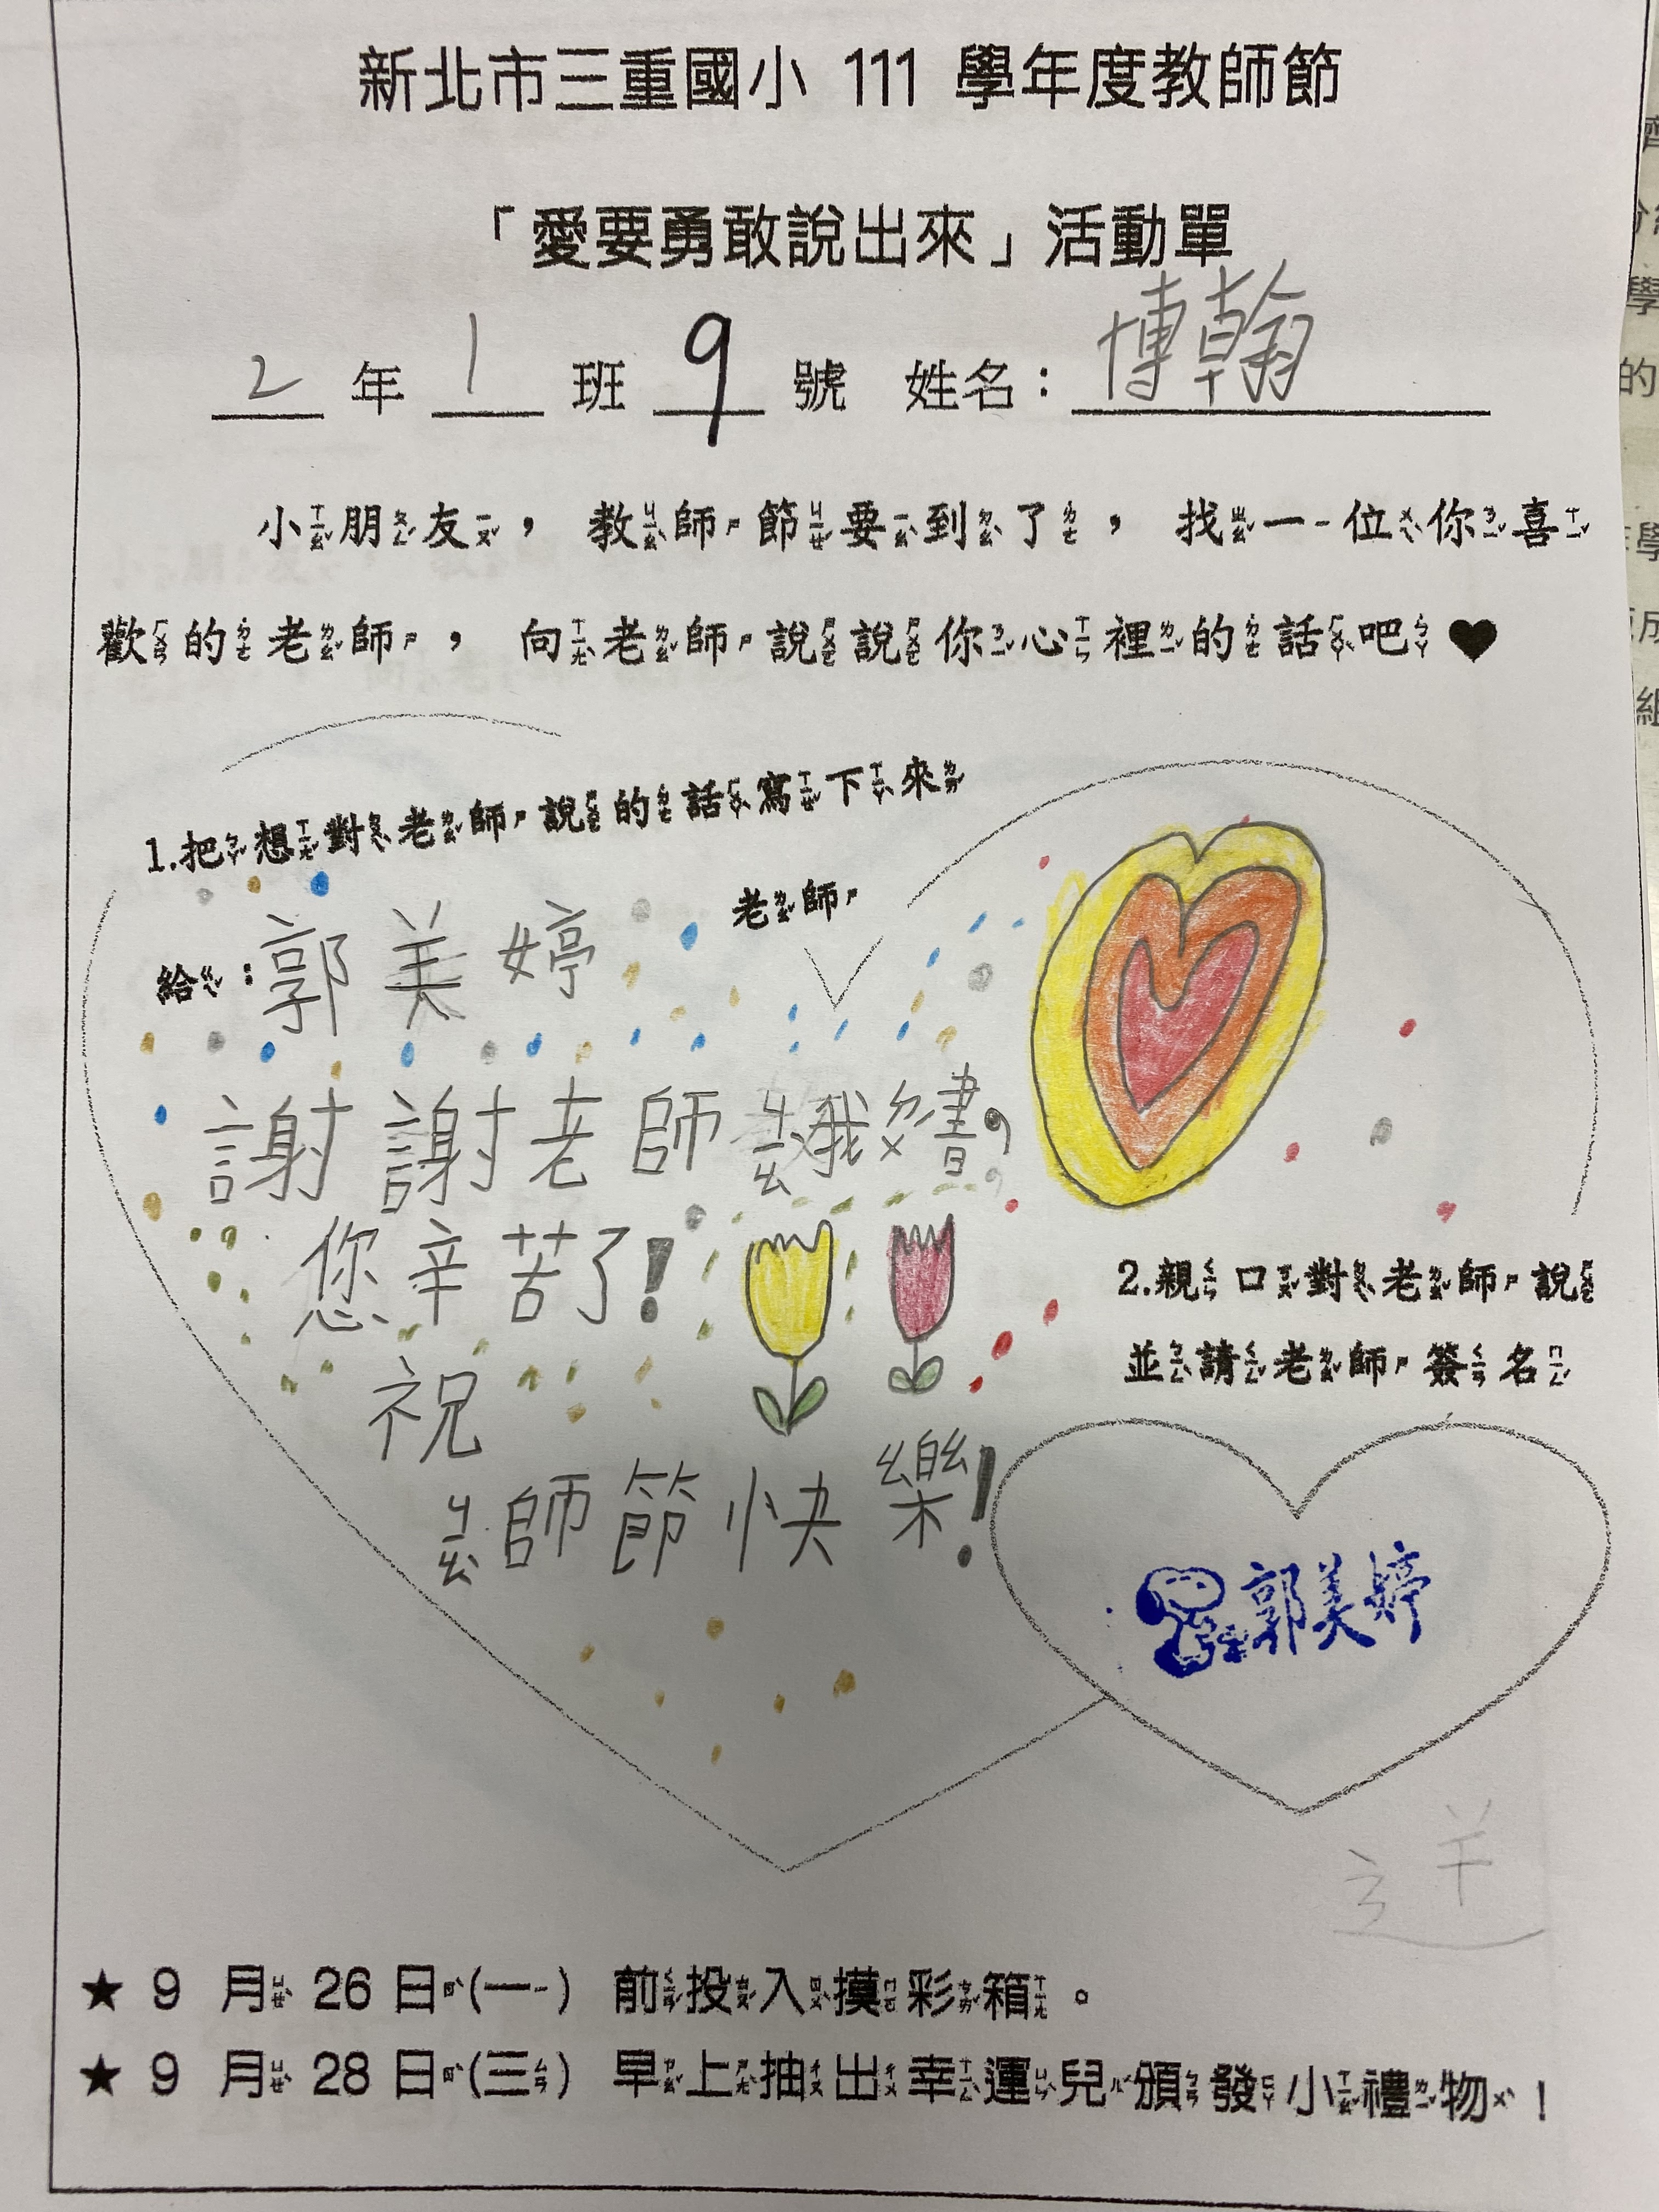 新北市三重國小 111 學年度教師節
「愛要勇敢說出來」活動單
2 年 1 班 9 號 姓名：博翰
小朋友，教師節要到了，找一位你喜
歡的老師，向老師說說你心裡的話吧♥
1.把想對老師說的話寫下來
給：郭美婷 老師
謝謝老師ㄐㄧㄠ我ㄉㄨ書，
您辛苦了！
祝
ㄐㄧㄠ師節快樂！
2.親口對老師說
並請老師簽名
郭美婷
★ 9 月 26 日(一) 前投入摸彩箱。
★ 9 月 28 日(三) 早上抽出幸運兒頒發小禮物！